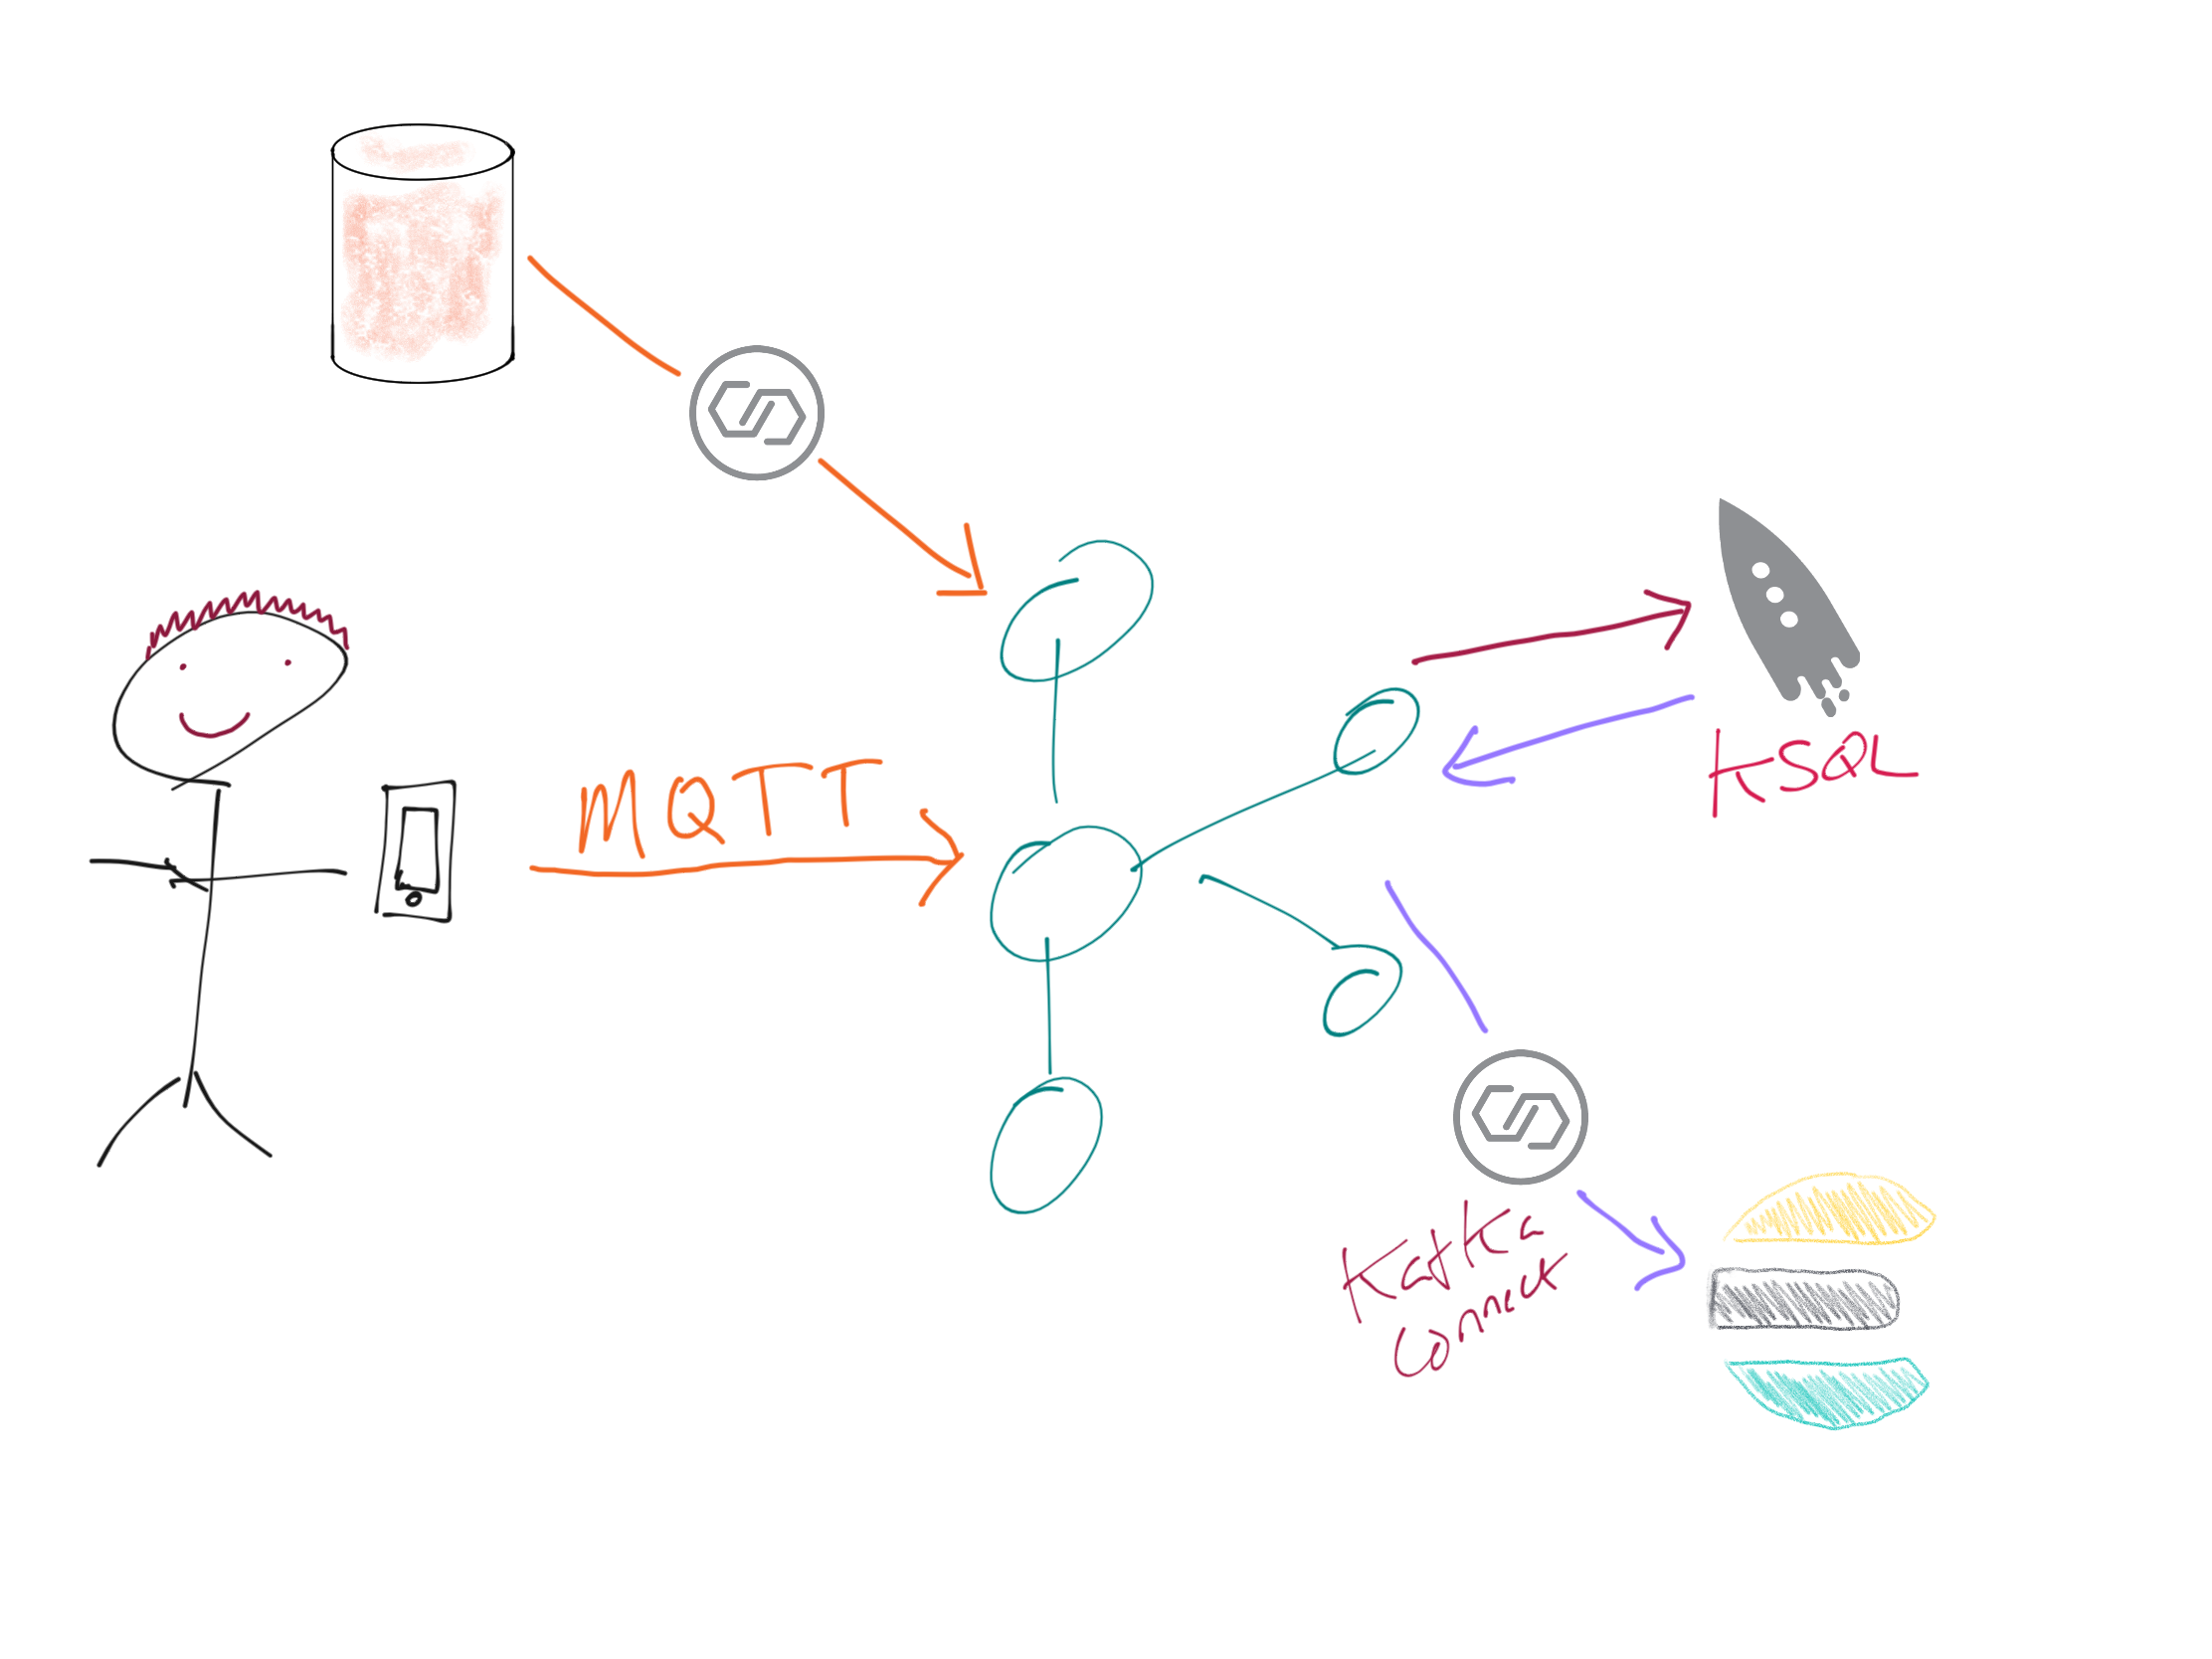 MQTT
KSQL
Kafka
Connect